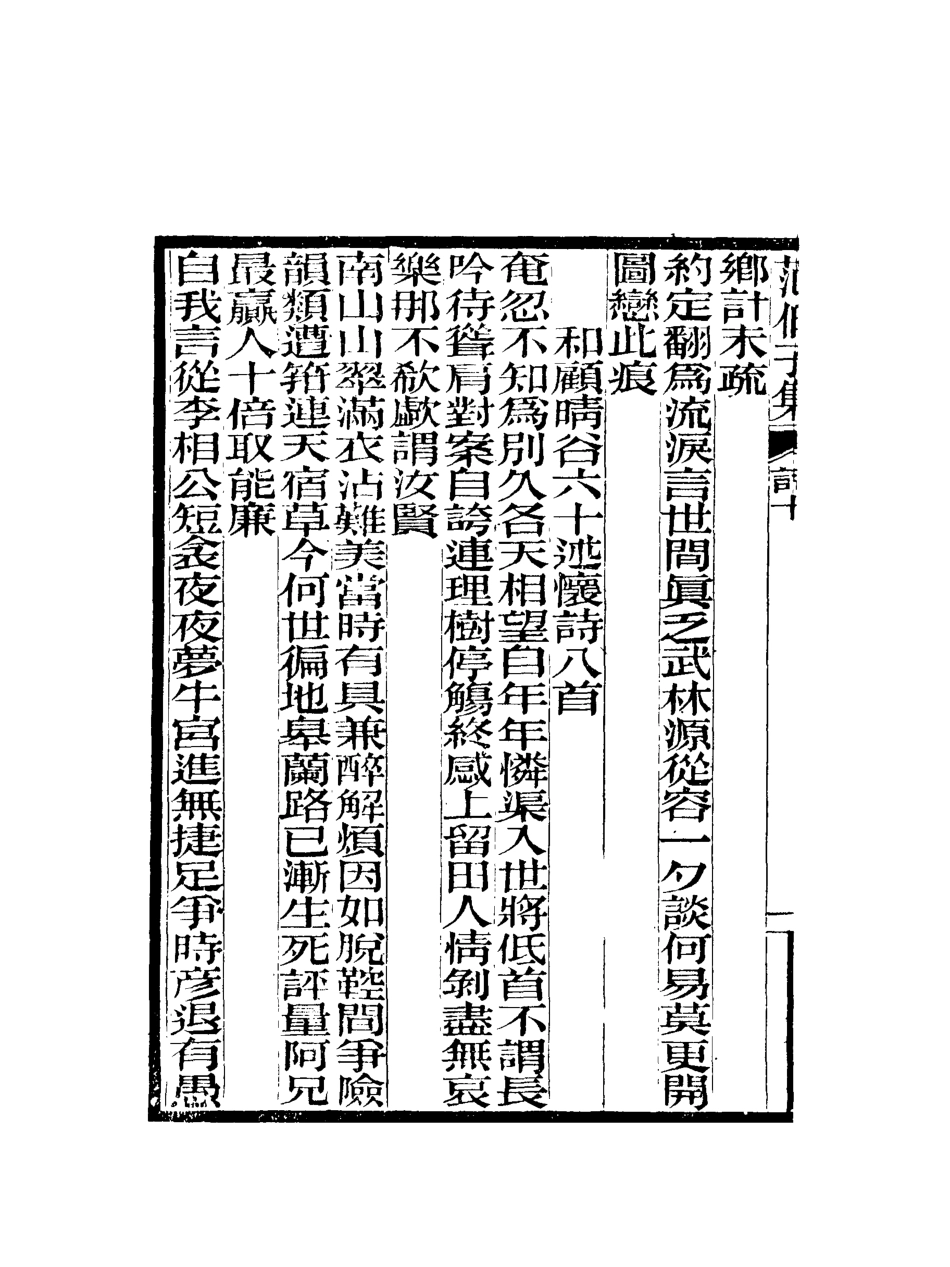 范伯子集 詩十
鄉計未疏
約定翻爲流淚言世間眞乏武林源從容一夕談何易莫更開
圖戀此痕
和顧晴谷六十述懷詩八首
奄忽不知爲別久各天相望自年年憐渠入世將低首不謂長
吟待聳肩對案自誇連理樹停觴終感上留田人情剝盡無哀
樂那不欷歔謂汝賢
南山山翠滿衣沾難美當時有具兼醉解煩因如脫鞚間爭險
韻類遭箝連天宿草今何世徧地皋蘭路已漸生死評量阿兄
最贏人十倍取能廉
自我言從李相公短衾夜夜夢牛宮進無捷足爭時彥退有愚